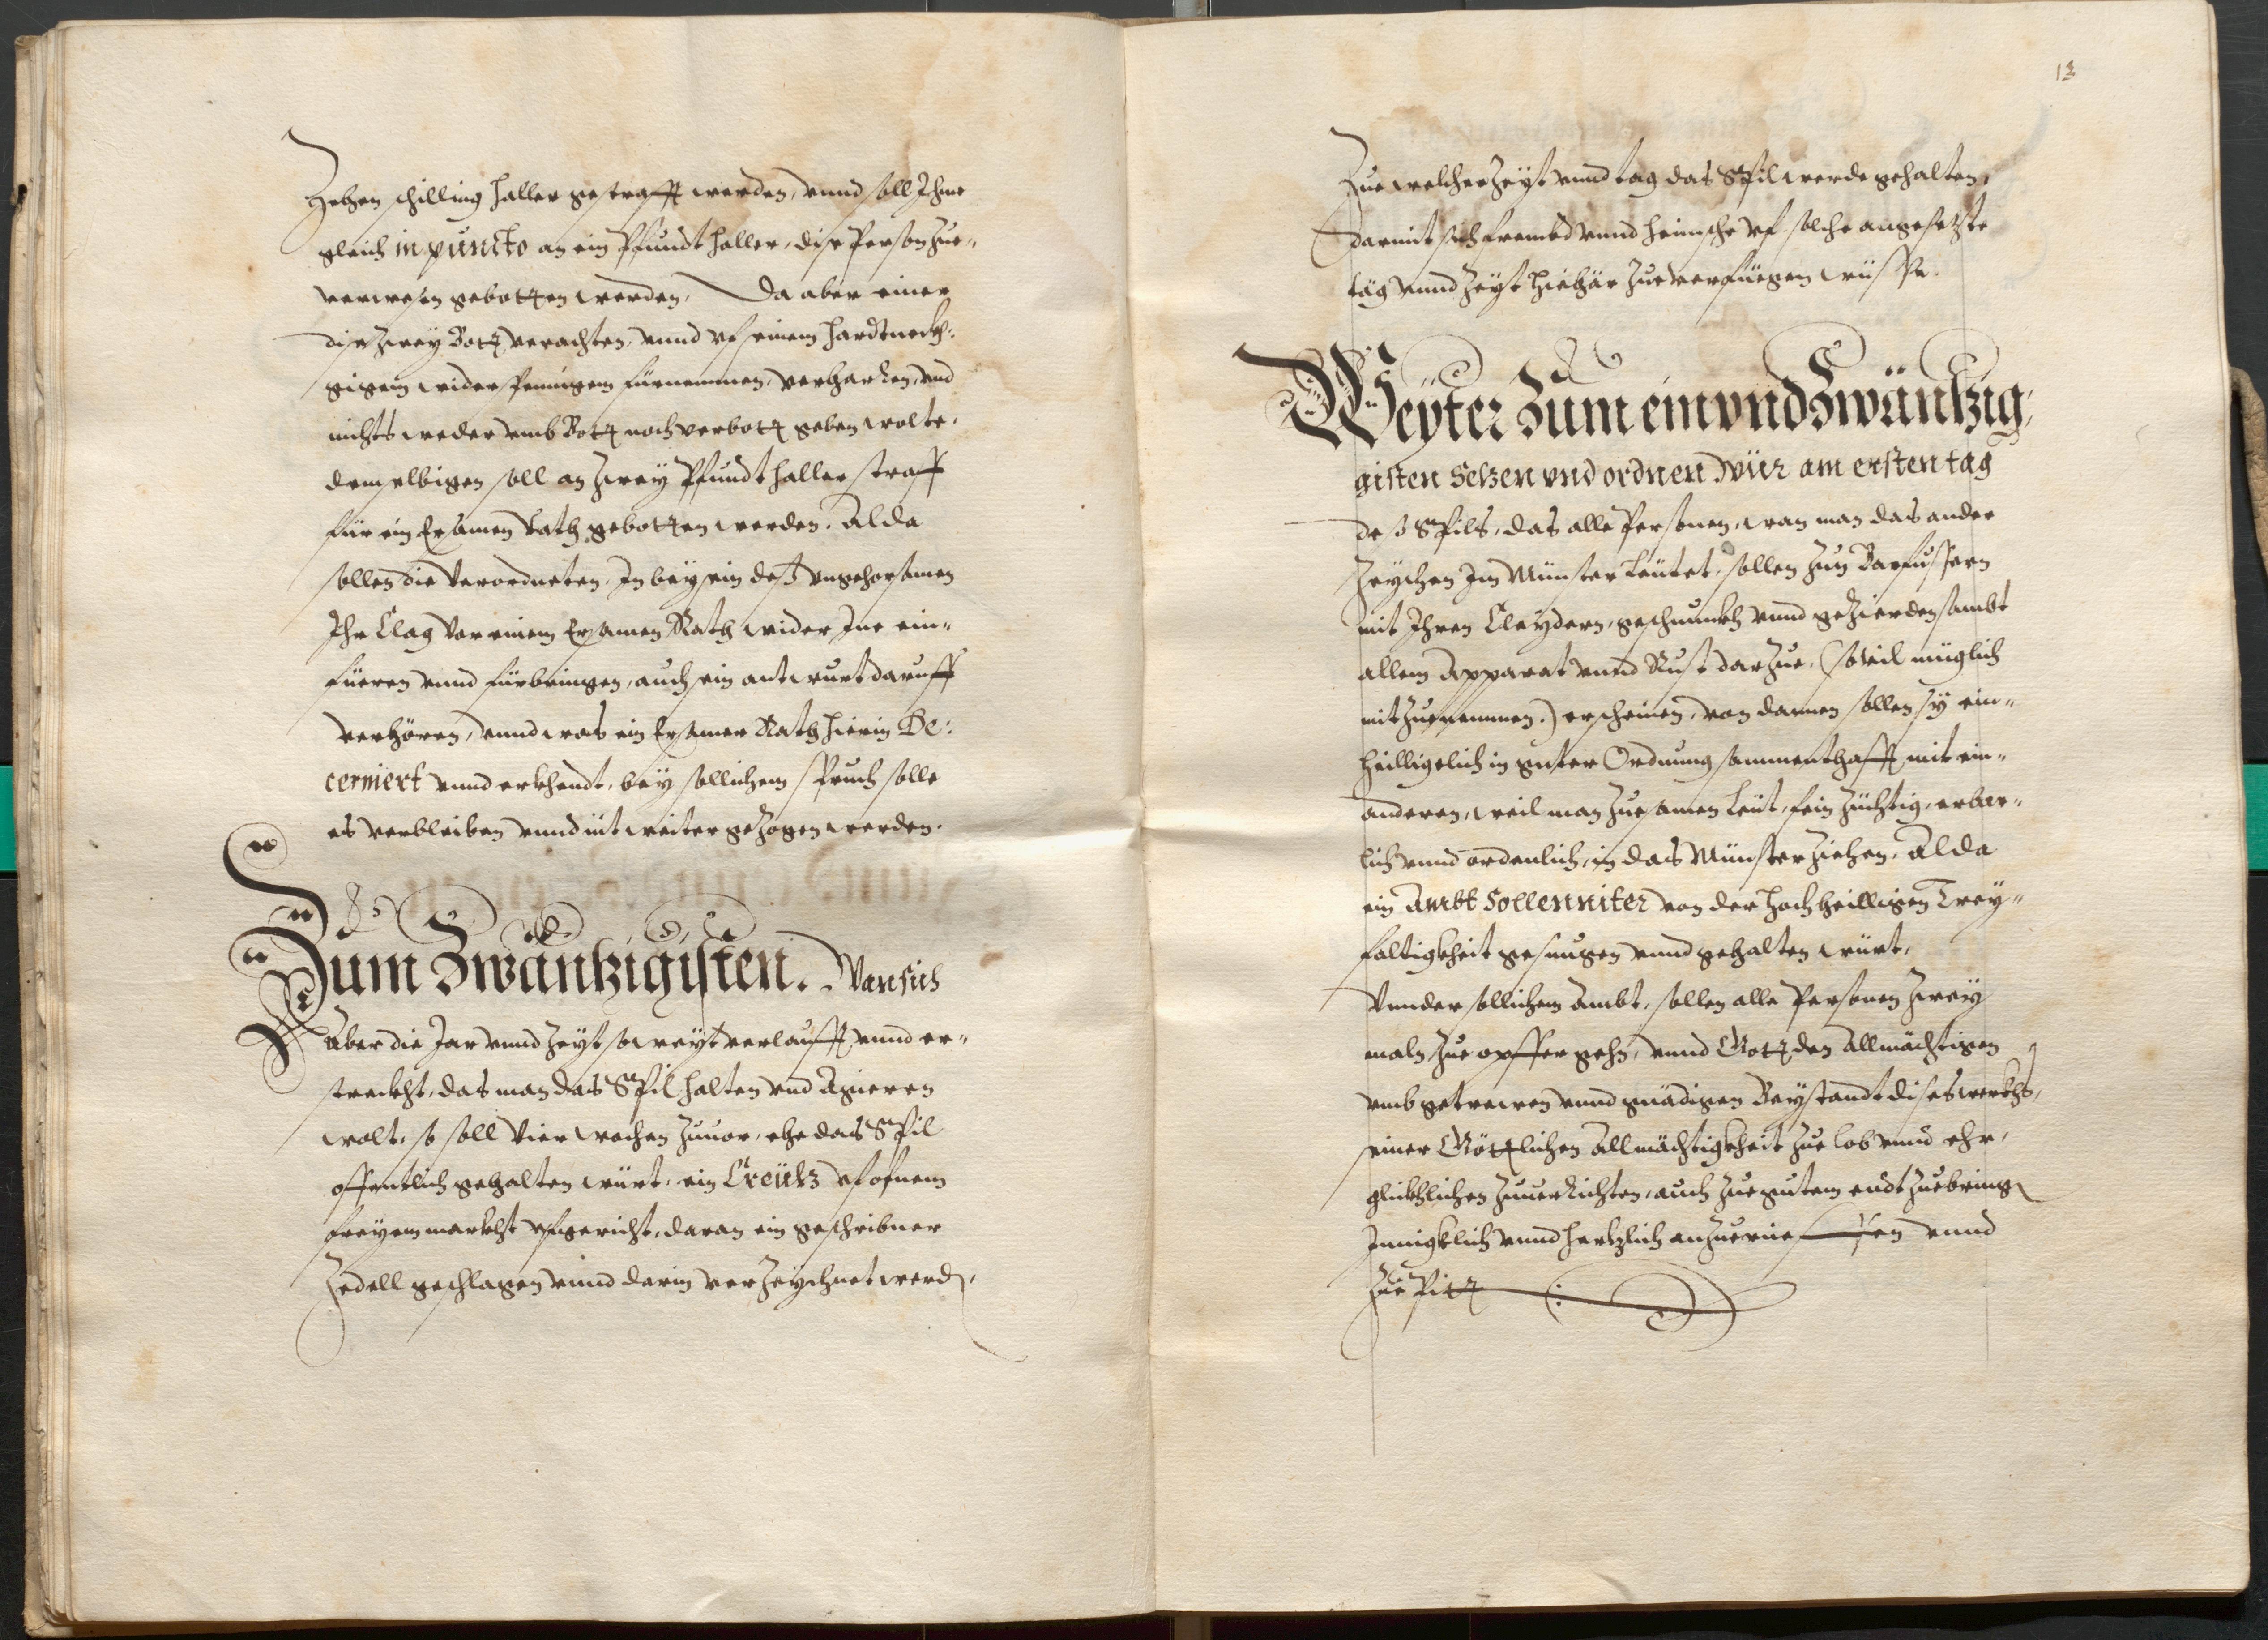 Zehen schilling haller gestrafft werden, vnnd soll Ihme
gleich in puncto an ein Pfundt haller, dise Person zue„
verwesen gebotten werden, Da aber einer
dise zwey Bott verachten, vnnd vf seinem hardtneckh„
gigein widerspenigem fürnemmen, verharren, vnd
nichts weder vmb Bott noch verbott geben wolte,
demselbigen soll an zwey Pfundt haller straff
für ein Ersamen Rath gebotten werden. Alda
sollen die Verordneten, In beysein deß vngehorsamen
Ihr Clag vor einem Ersamen Rath wider Ine ein„
füeren vnnd fürbringen, auch sein antwurt daruff
verhören, vnnd was ein Ersamer Rath hierin De:
cerniert vnnd erkhendt, bey sollichem spruch solle
es verbleiben vnnd nit weiter gezogen werden.
Zum Zwäntzigisten. Wan sich
Aber die Jar vnnd Zeyt so weyt verlaufft vnnd er„
streckht, das man das Spil halten vnd Agieren
wolt, so soll vier wochen zuuor, ehe das Spil
offentlich gehalten würt, ein Creütz vf ofnem
freyem markht vfgericht, daran ein geschribner
Zedell geschlagen vnnd darin verzeychnet werd,
12
Zue welcher Zeyt vnnd tag das Spil werde gehalten,
darmit sich frembd vnnd heimsche vf solche angesetzte
täg vnnd Zeyt hiehär zue verfüegen wüsse.
Weyter Zum ein vnd Zwäntzig„
gisten Setzen vnd ordnen Wür am ersten tag
deß Spils, das alle Personen, wan man das ander
Zeychen Im Münster Leütet, sollen zun Barfussern
mit Ihren Cleydern, geschmuckh vnnd gezierden sambt
allem Apparat vnnd Rust darzue, (so vil müglich
mitzuenemmen.) erscheinen, von dannen sollen sy ein„
heilligelich in guter Ordnung sammenthafft mit ein„
anderen, weil man zuesamen Leüt, fein züchtig, erbar„
lich vnnd ordenlich, in das Münster ziehen. Alda
ein Ambt Sollenniter von der hochheilligen Drey„
faltigkheit gesungen vnnd gehalten würt,
Vnnder sollichem Ambt, sollen alle Personen zwey
maln zue opffer gehn, vnnd Gott den Allmächtigen
vmb getrewen vnnd gnädigen Beystandt dises werkhs,
seiner Göttlichen Allmächtigkheit zue lob vnnd ehr,
glückhlichen zuuerrichten, auch zue gutem endt zuebring
Innigklich vnnd hertzlich anzueruefen vnnd
zue Pitt